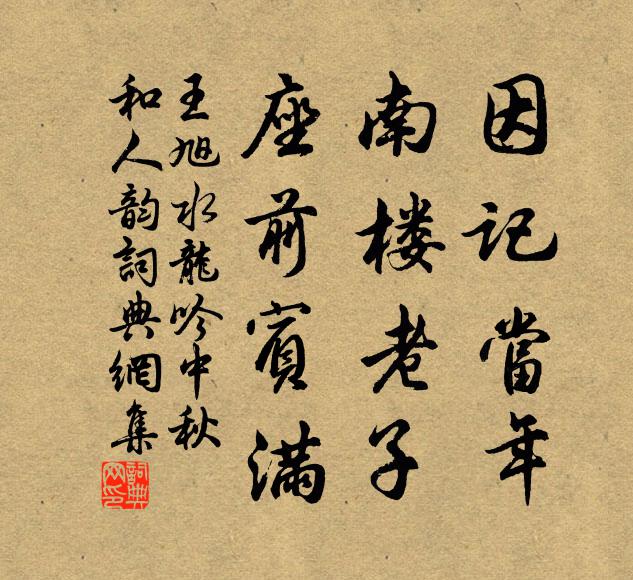 因记當年
南楼老子
座前賓满
王旭水龍吟中秋
和人韵詞典網集
詞典
网印